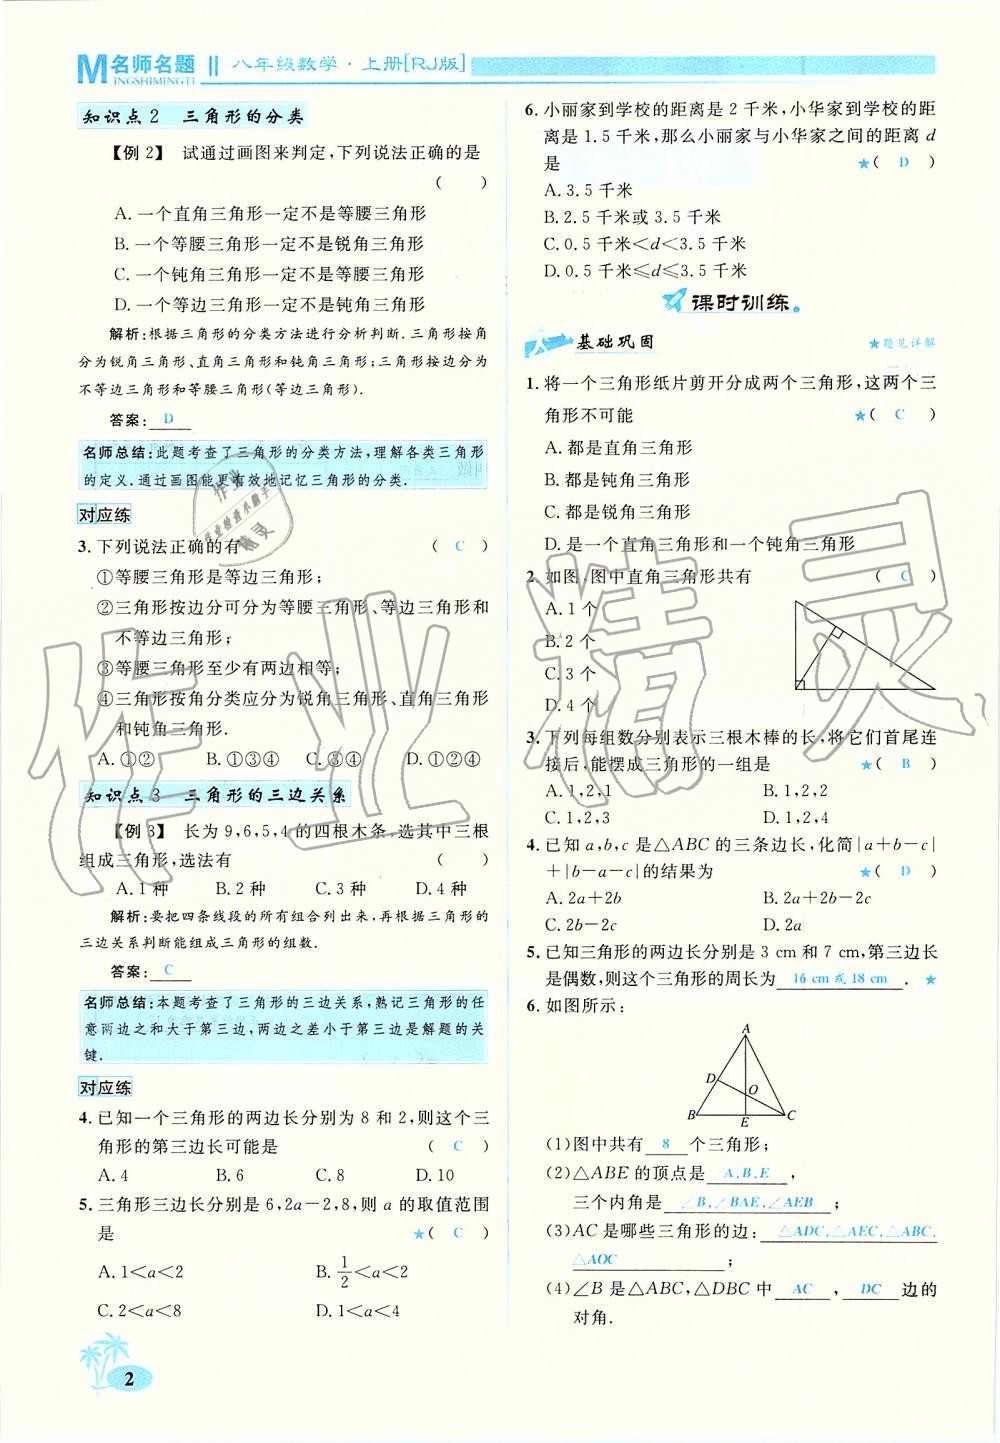 M名师名题
INGSHIMINGTI
八年级数学·上册[RJ版]
知识点2 三角形的分类
【例2】 试通过画图来判定,下列说法正确的是
( )
A.一个直角三角形一定不是等腰三角形
B.一个等腰三角形一定不是锐角三角形
C.一个钝角三角形一定不是等腰三角形
D.一个等边三角形一定不是钝角三角形
解析:根据三角形的分类方法进行分析判断.三角形按角
分为锐角三角形、直角三角形和钝角三角形;三角形按边分为
不等边三角形和等腰三角形(等边三角形).
答案: D
名师总结:此题考查了三角形的分类方法,理解各类三角形
的定义.通过画图能更有效地记忆三角形的分类.
对应练
3.下列说法正确的有 ( C )
①等腰三角形是等边三角形;
②三角形按边分可分为等腰三角形、等边三角形和
不等边三角形;
③等腰三角形至少有两边相等;
④三角形按角分类应分为锐角三角形、直角三角形
和钝角三角形.
A.①② B.①③④ C.③④ D.①②④
知识点3 三角形的三边关系
【例3】 长为9,6,5,4的四根木条,选其中三根
组成三角形,选法有 ( )
A.1种 B.2种 C.3种 D.4种
解析:要把四条线段的所有组合列出来,再根据三角形的
三边关系判断能组成三角形的组数.
答案: C
名师总结:本题考查了三角形的三边关系,熟记三角形的任
意两边之和大于第三边,两边之差小于第三边是解题的关
键.
对应练
4.已知一个三角形的两边长分别为8和2,则这个三
角形的第三边长可能是 ( C )
A.4 B.6 C.8 D.10
5.三角形三边长分别是6,2a-2,8,则a的取值范围
是 ★( C )
A.1<a<2 B.1/2<a<2
C.2<a<8 D.1<a<4
2
6.小丽家到学校的距离是2千米,小华家到学校的距
离是1.5千米,那么小丽家与小华家之间的距离d
是 ★( D )
A.3.5千米
B.2.5千米或3.5千米
C.0.5千米<d<3.5千米
D.0.5千米≤d≤3.5千米
课时训练
基础巩固 ★题见详解
1.将一个三角形纸片剪开分成两个三角形,这两个三
角形不可能 ★( C )
A.都是直角三角形
B.都是钝角三角形
C.都是锐角三角形
D.是一个直角三角形和一个钝角三角形
2.如图,图中直角三角形共有 ( C )
A.1个
B.2个
C.3个
D.4个
3.下列每组数分别表示三根木棒的长,将它们首尾连
接后,能摆成三角形的一组是 ★( B )
A.1,2,1 B.1,2,2
C.1,2,3 D.1,2,4
4.已知a,b,c是△ABC的三条边长,化简|a+b-c|
+|b-a-c|的结果为 ★( D )
A.2a+2b B.2a+2b-2c
C.2b-2c D.2a
5.已知三角形的两边长分别是3 cm和7 cm,第三边长
是偶数,则这个三角形的周长为 16 cm或18 cm . ★
6.如图所示:
A
D
O
B
E
C
(1)图中共有 8 个三角形;
(2)△ABE的顶点是 A,B,E ,
三个内角是 ∠B,∠BAE,∠AEB ;
(3)AC是哪些三角形的边: △ADC,△AEC,△ABC,
△AOC ;
(4)∠B是△ABC,△DBC中 AC , DC 边的
对角.
作业精灵
作业
作业检查小助手
精灵